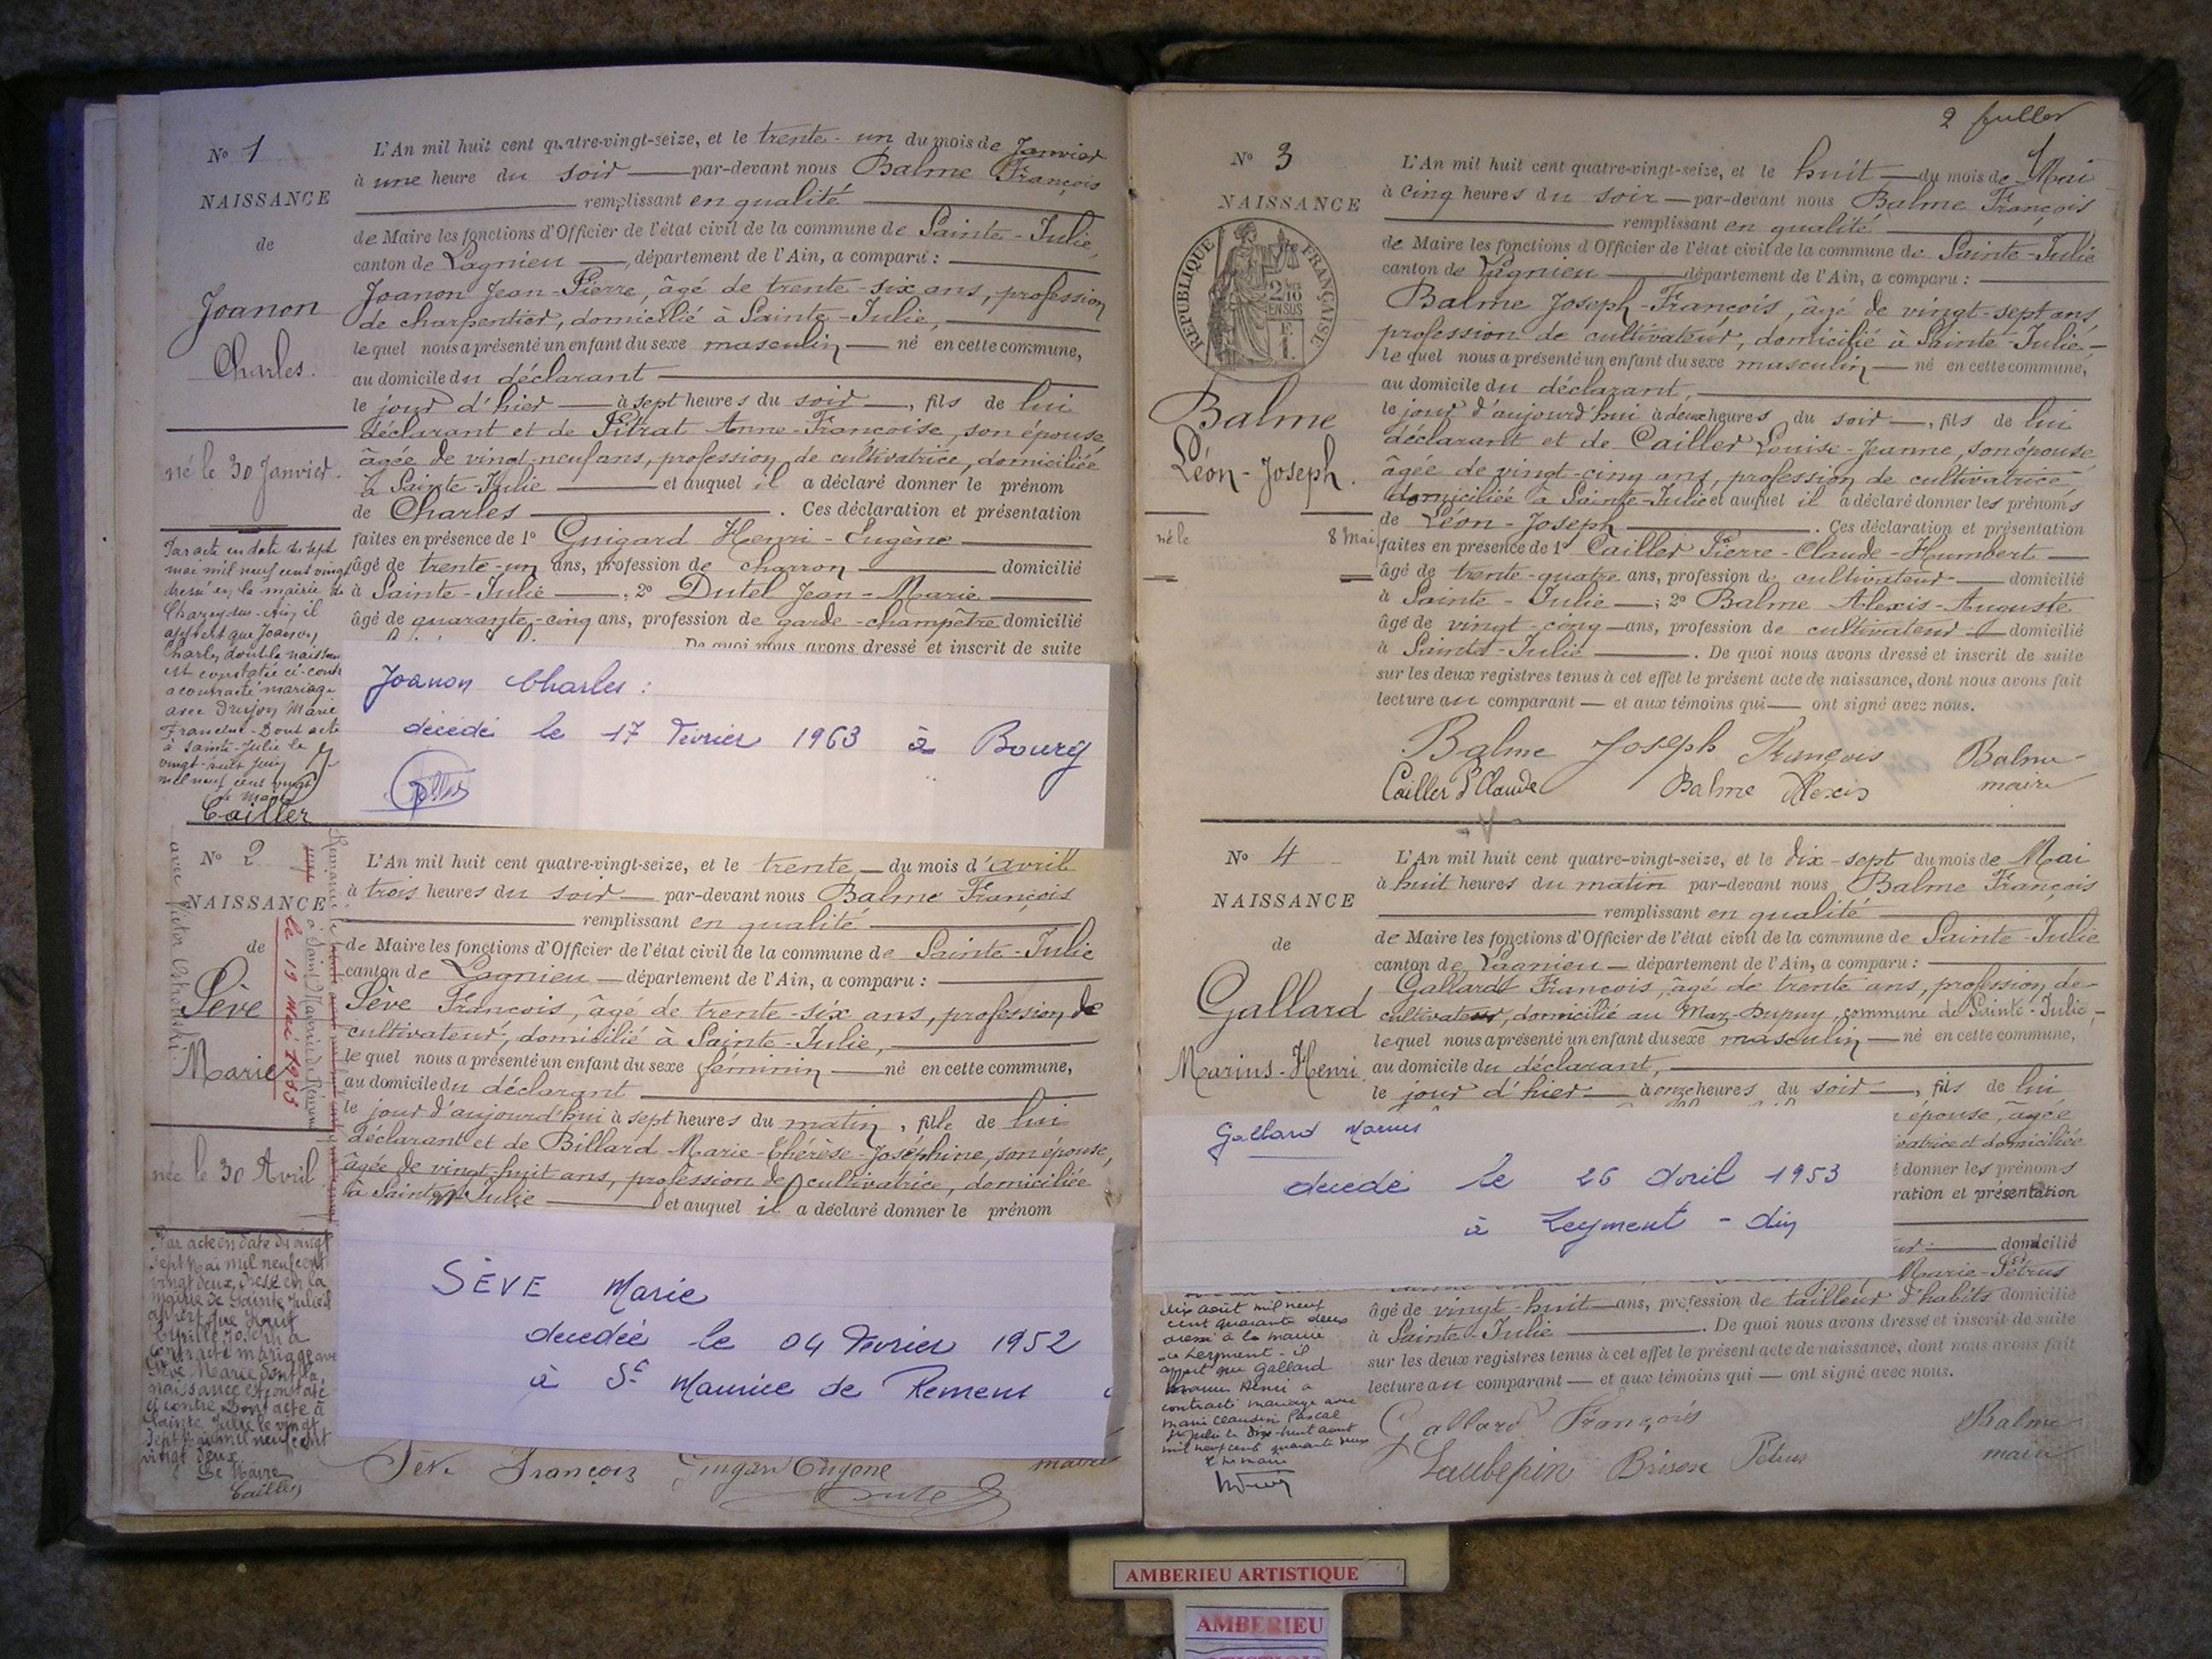 N° 1
NAISSANCE
de
Joanon
Charles.
né le 30 Janvier.
Par acte en date du sept
mai mil neuf cent vingt
dressé en la mairie de
Chazey-sur-Ain, il
appert que Joanon
Charles dont la naissance
est constatée ci-contre
a contracté mariage
avec Marie
Francine. Dont acte
à Sainte-Julie le
vingt-huit juin
mil neuf cent vingt
Le Maire
Cailler
L'An mil huit cent quatre-vingt-seize, et le trente-un du mois de Janvier
à une heure du soir par-devant nous Balme François
remplissant en qualité
de Maire les fonctions d'Officier de l'état civil de la commune de Sainte-Julie,
canton de Lagnieu, département de l'Ain, a comparu :
Joanon Jean-Pierre, âgé de trente-six ans, profession
de charpentier, domicilié à Sainte-Julie,
lequel nous a présenté un enfant du sexe masculin né en cette commune,
au domicile du déclarant
le jour d'hier à sept heures du soir, fils de lui
déclarant et de Pitrat Anne-Françoise, son épouse,
âgée de vingt-neuf ans, profession de cultivatrice, domiciliée
à Sainte-Julie et auquel il a déclaré donner le prénom
de Charles. Ces déclaration et présentation
faites en présence de 1° Guigard Henri-Eugène
âgé de trente-un ans, profession de charron domicilié
à Sainte-Julie, 2° Dutel Jean-Marie
âgé de quarante-cinq ans, profession de garde-champêtre domicilié
De quoi nous avons dressé et inscrit de suite
Joanon Charles :
décédé le 17 Février 1963 à Bourg
N° 2
NAISSANCE
de
Sève
Marie
née le 30 Avril
le 19 Mai 1923
à Saint Maurice de Rémens
avec Victor
Par acte en date du vingt
sept Mai mil neuf cent
vingt deux, dressé en la
mairie de Sainte Julie il
appert que
Joseph a
contracté mariage avec
Sève Marie dont la
naissance est constatée
ci contre Dont acte à
Sainte Julie le vingt
sept mai mil neuf cent
vingt deux
Le Maire
Cailler
L'An mil huit cent quatre-vingt-seize, et le trente du mois d'avril
à trois heures du soir par-devant nous Balme François
remplissant en qualité
de Maire les fonctions d'Officier de l'état civil de la commune de Sainte-Julie
canton de Lagnieu département de l'Ain, a comparu :
Sève François, âgé de trente-six ans, profession de
cultivateur, domicilié à Sainte-Julie,
lequel nous a présenté un enfant du sexe féminin né en cette commune,
au domicile du déclarant
le jour d'aujourd'hui à sept heures du matin, fille de lui
déclarant et de Billard Marie-Thérèse-Joséphine, son épouse,
âgée de vingt-huit ans, profession de cultivatrice, domiciliée
à Sainte-Julie et auquel il a déclaré donner le prénom
SÈVE Marie
décédée le 04 Février 1952
à St Maurice de Remens
maire
Sève François Guigard Eugène
Dutel
2 fuller
N° 3
NAISSANCE
RÉPUBLIQUE FRANÇAISE
2/10 EN SUS
Balme
Léon-Joseph.
né le 8 Mai
L'An mil huit cent quatre-vingt-seize, et le huit du mois de Mai
à cinq heures du soir par-devant nous Balme François
remplissant en qualité
de Maire les fonctions d'Officier de l'état civil de la commune de Sainte-Julie
canton de Lagnieu département de l'Ain, a comparu :
Balme Joseph-François, âgé de vingt-sept ans
profession de cultivateur, domicilié à Sainte-Julie,
lequel nous a présenté un enfant du sexe masculin né en cette commune,
au domicile du déclarant,
le jour d'aujourd'hui à deux heures du soir, fils de lui
déclarant et de Cailler Louise-Jeanne, son épouse
âgée de vingt-cinq ans, profession de cultivatrice
domiciliée à Sainte-Julie et auquel il a déclaré donner les prénoms
de Léon-Joseph. Ces déclaration et présentation
faites en présence de 1° Cailler Pierre-Claude-Humbert
âgé de trente-quatre ans, profession de cultivateur domicilié
à Sainte-Julie ; 2° Balme Alexis-Auguste
âgé de vingt-cinq ans, profession de cultivateur domicilié
à Sainte-Julie. De quoi nous avons dressé et inscrit de suite
sur les deux registres tenus à cet effet le présent acte de naissance, dont nous avons fait
lecture au comparant et aux témoins qui ont signé avec nous.
Balme Joseph François Balme
Cailler P Claude Balme Alexis maire
N° 4
NAISSANCE
de
Gallard
Marius-Henri
dix août mil neuf
cent quarante deux
dressé à la mairie
de Leyment - il
appert que Gallard
Marius Henri a
contracté mariage avec
Marie Claudine Pascal
Ste Julie le dix-huit août
mil neuf cent quarante deux
Le maire
L'An mil huit cent quatre-vingt-seize, et le dix-sept du mois de Mai
à huit heures du matin par-devant nous Balme François
remplissant en qualité
de Maire les fonctions d'Officier de l'état civil de la commune de Sainte-Julie
canton de Lagnieu département de l'Ain, a comparu :
Gallard François, âgé de trente ans, profession de
cultivateur, domicilié au Maz-Dupuy, commune de Sainte-Julie,
lequel nous a présenté un enfant du sexe masculin né en cette commune,
au domicile du déclarant,
le jour d'hier à onze heures du soir, fils de lui
épouse, âgée
vatrice et domiciliée
donner les prénoms
ration et présentation
domicilié
Marie-Pétrus
Gallard Marius
décédé le 26 Avril 1953
à Leyment - Ain
âgé de vingt-huit ans, profession de tailleur d'habits domicilié
à Sainte-Julie. De quoi nous avons dressé et inscrit de suite
sur les deux registres tenus à cet effet le présent acte de naissance, dont nous avons fait
lecture au comparant et aux témoins qui ont signé avec nous.
Gallard François Balme
Laubepin Brison Pétrus maire
AMBERIEU ARTISTIQUE
AMBERIEU